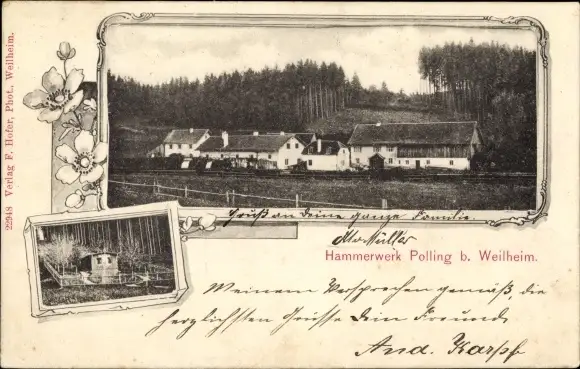 22948 Verlag F. Hofer, Phot., Weilheim.
Gruß an deine ganze Familie
Müller
Hammerwerk Polling b. Weilheim.
Meinem Versprechen gemäß, die
herzlichsten Grüsse Dein Freund
And. Karpf